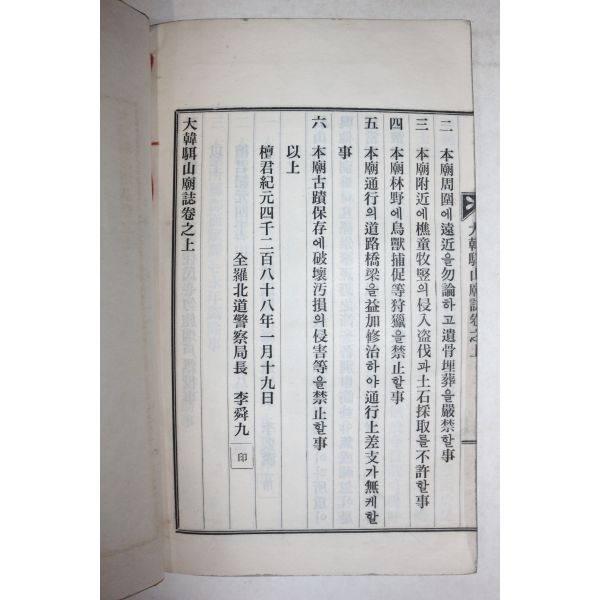 大韓駬山廟誌卷之上
二 本廟周圍에遠近을勿論하고遺骨埋葬을嚴禁할事
三 本廟附近에樵童牧竪의侵入盜伐과土石採取를不許할事
四 本廟林野에鳥獸捕促等狩獵을禁止할事
五 本廟通行의道路橋梁을益加修治하야通行上差支가無케할
事
六 本廟古蹟保存에破壞汚損의侵害等을禁止할事
以上
檀君紀元四千二百八十八年一月十九日
全羅北道警察局長 李舜九 印
大韓駬山廟誌卷之上